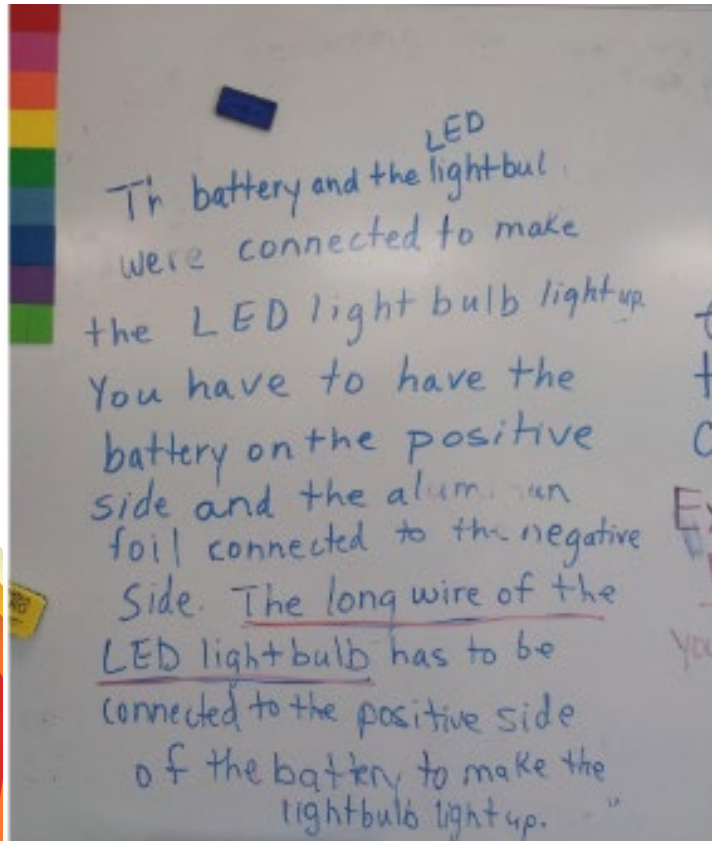 LED
Th battery and the lightbul
were connected to make
the LED light bulb light up
You have to have the
battery on the positive
side and the alum un
foil connected to the negative
Side. The long wire of the
LED lightbulb has to be
connected to the positive side
of the battery to make the
lightbulb light up. "